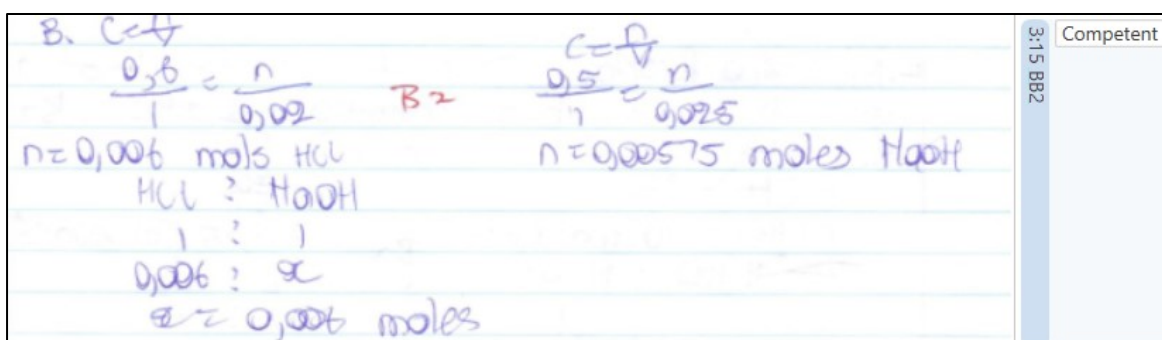 B. C=n/V
0,6/1 = n/0,02
B2
n=0,006 mols HCl
HCl : NaOH
1 : 1
0,006 : x
x = 0,006 moles
C=n/V
0,5/1 = n/0,025
n=0,00575 moles NaOH
3:15 BB2
Competent